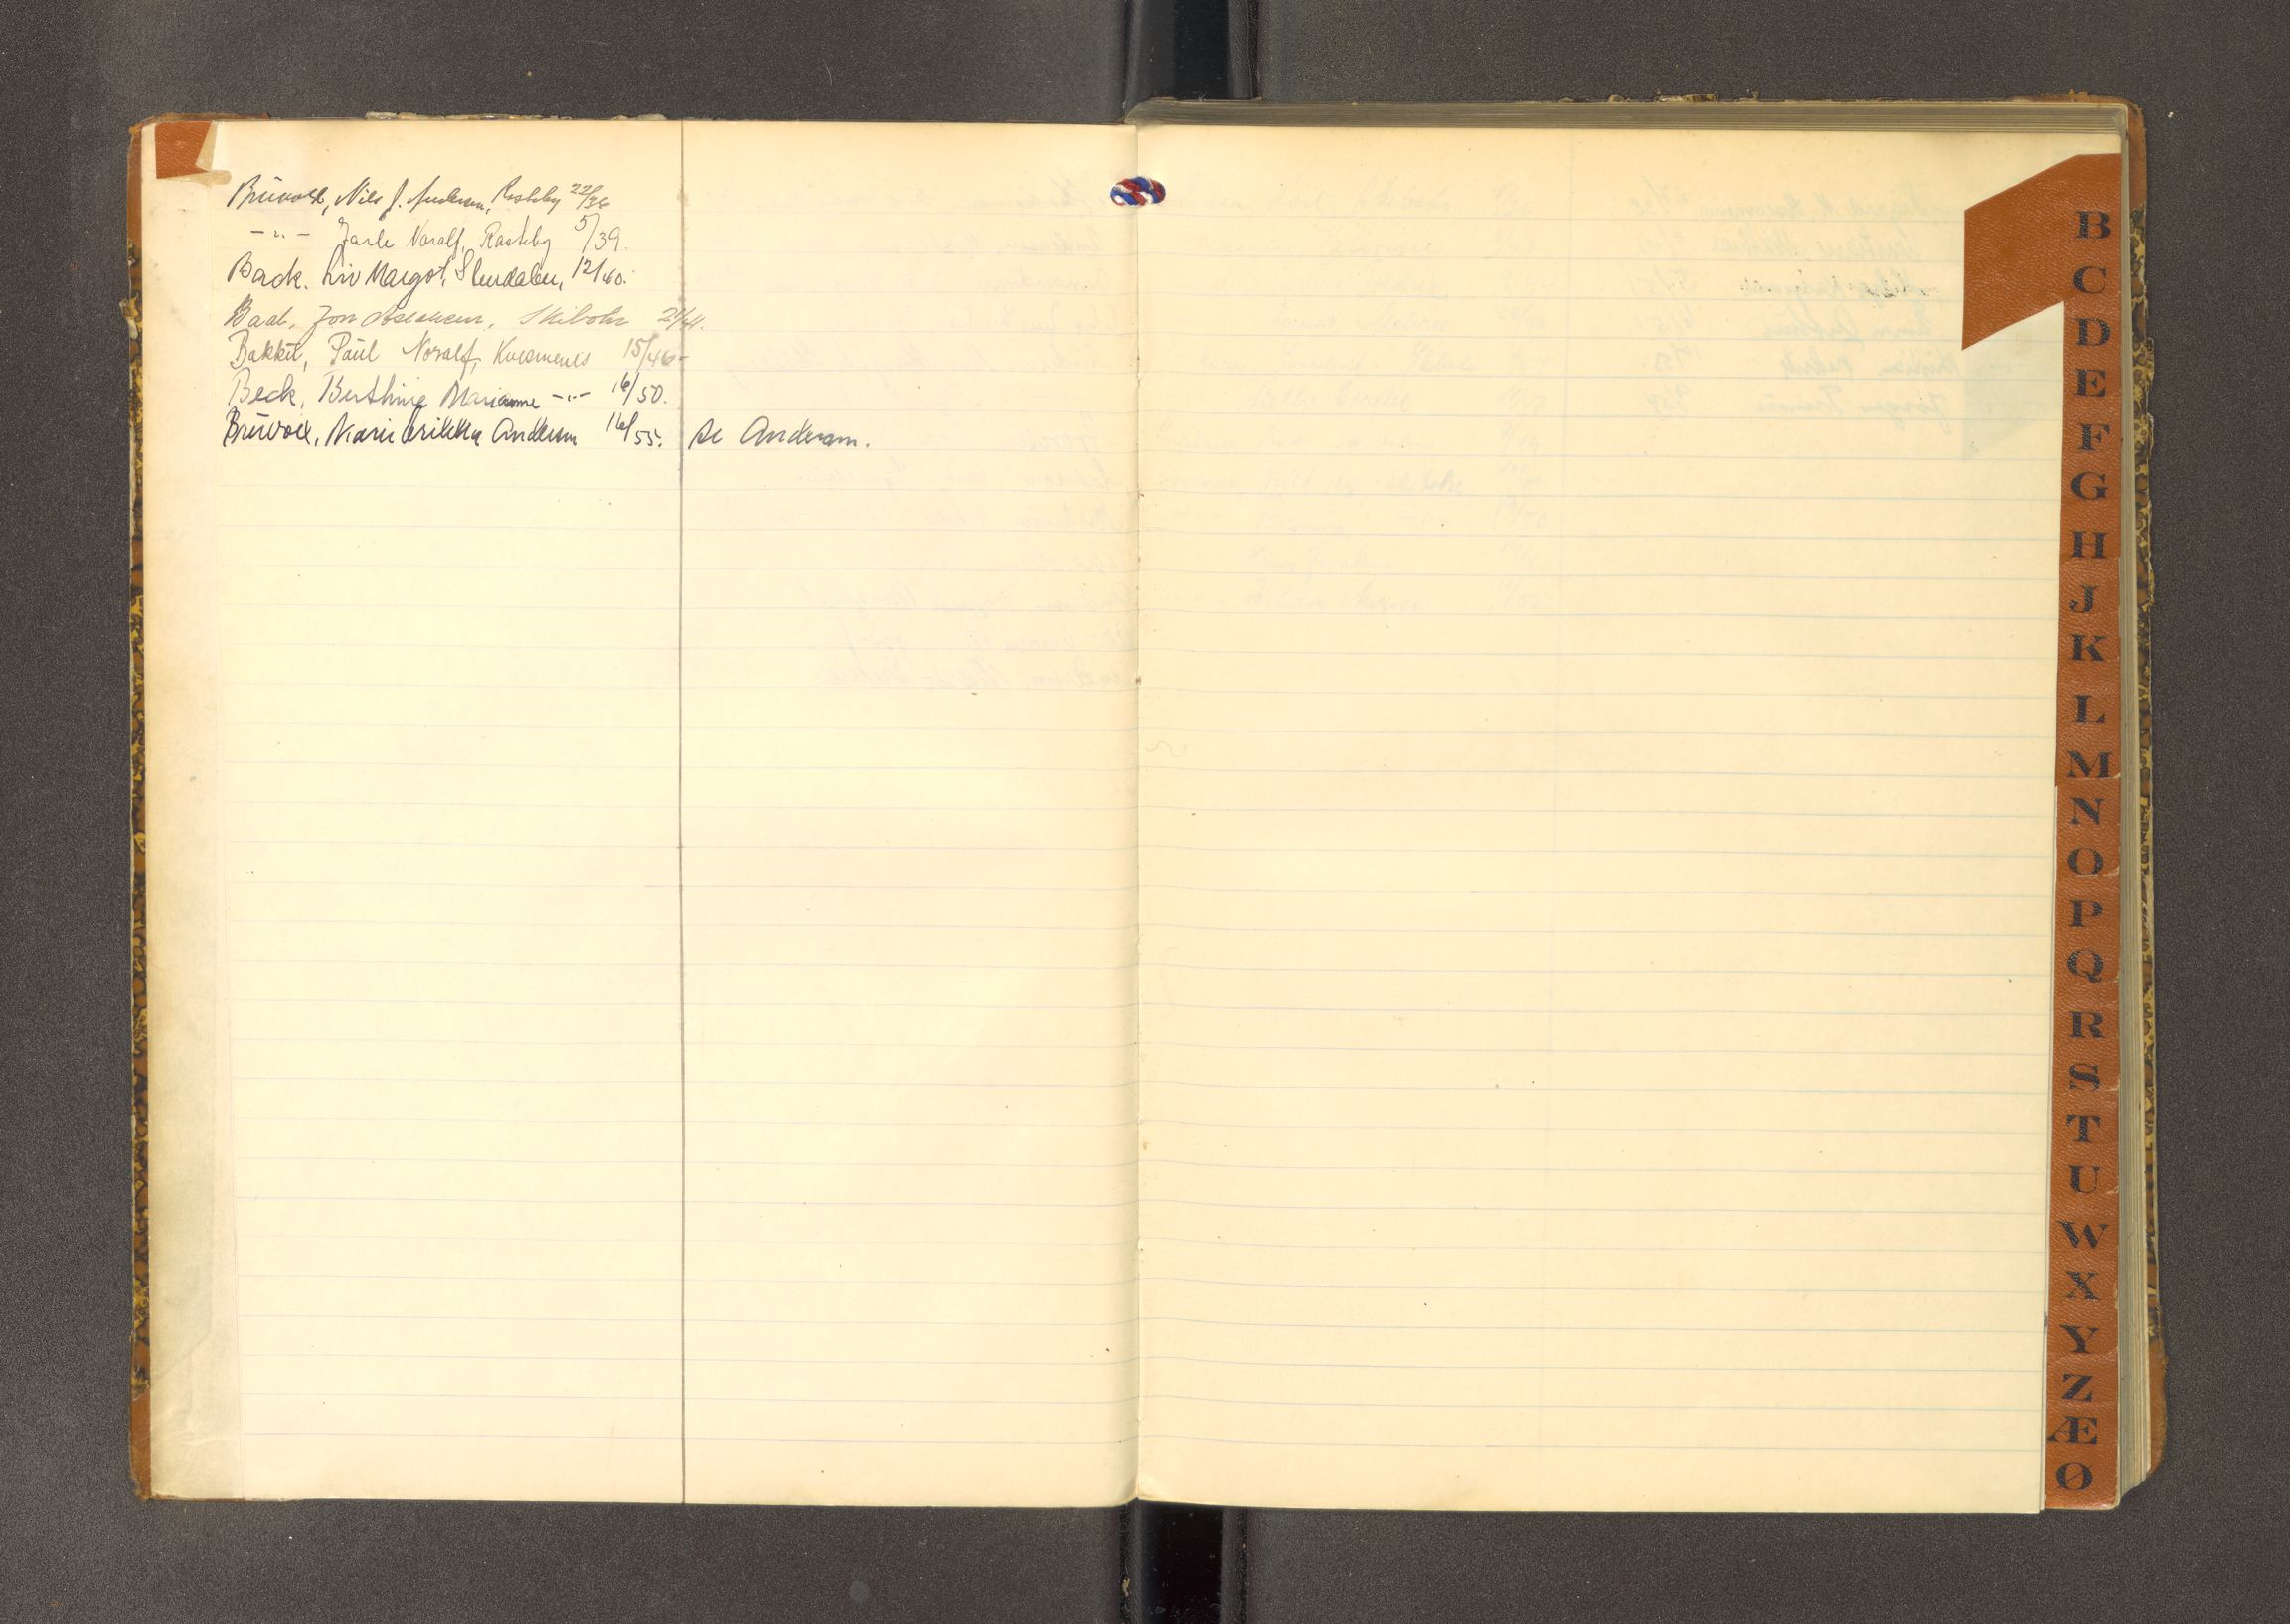 Bruvold, Nils J. Andersen, Rasteby 22/36
-"- Jarle Noralf, Rasteby 5/39.
Back. Liv Margot, 12/40.
Baal, Jon Skibotn 21/41.
Bakke, Paul Noralf, Kvesmenes 15/46
Beck, Berthine Marianne -"- 16/50.
Bruvold, Marie Andersen 16/55. se Andersen.
B
C
D
E
F
G
H
J
K
L
M
N
O
P
Q
R
S
T
U
W
X
Y
Z
Æ
Ø